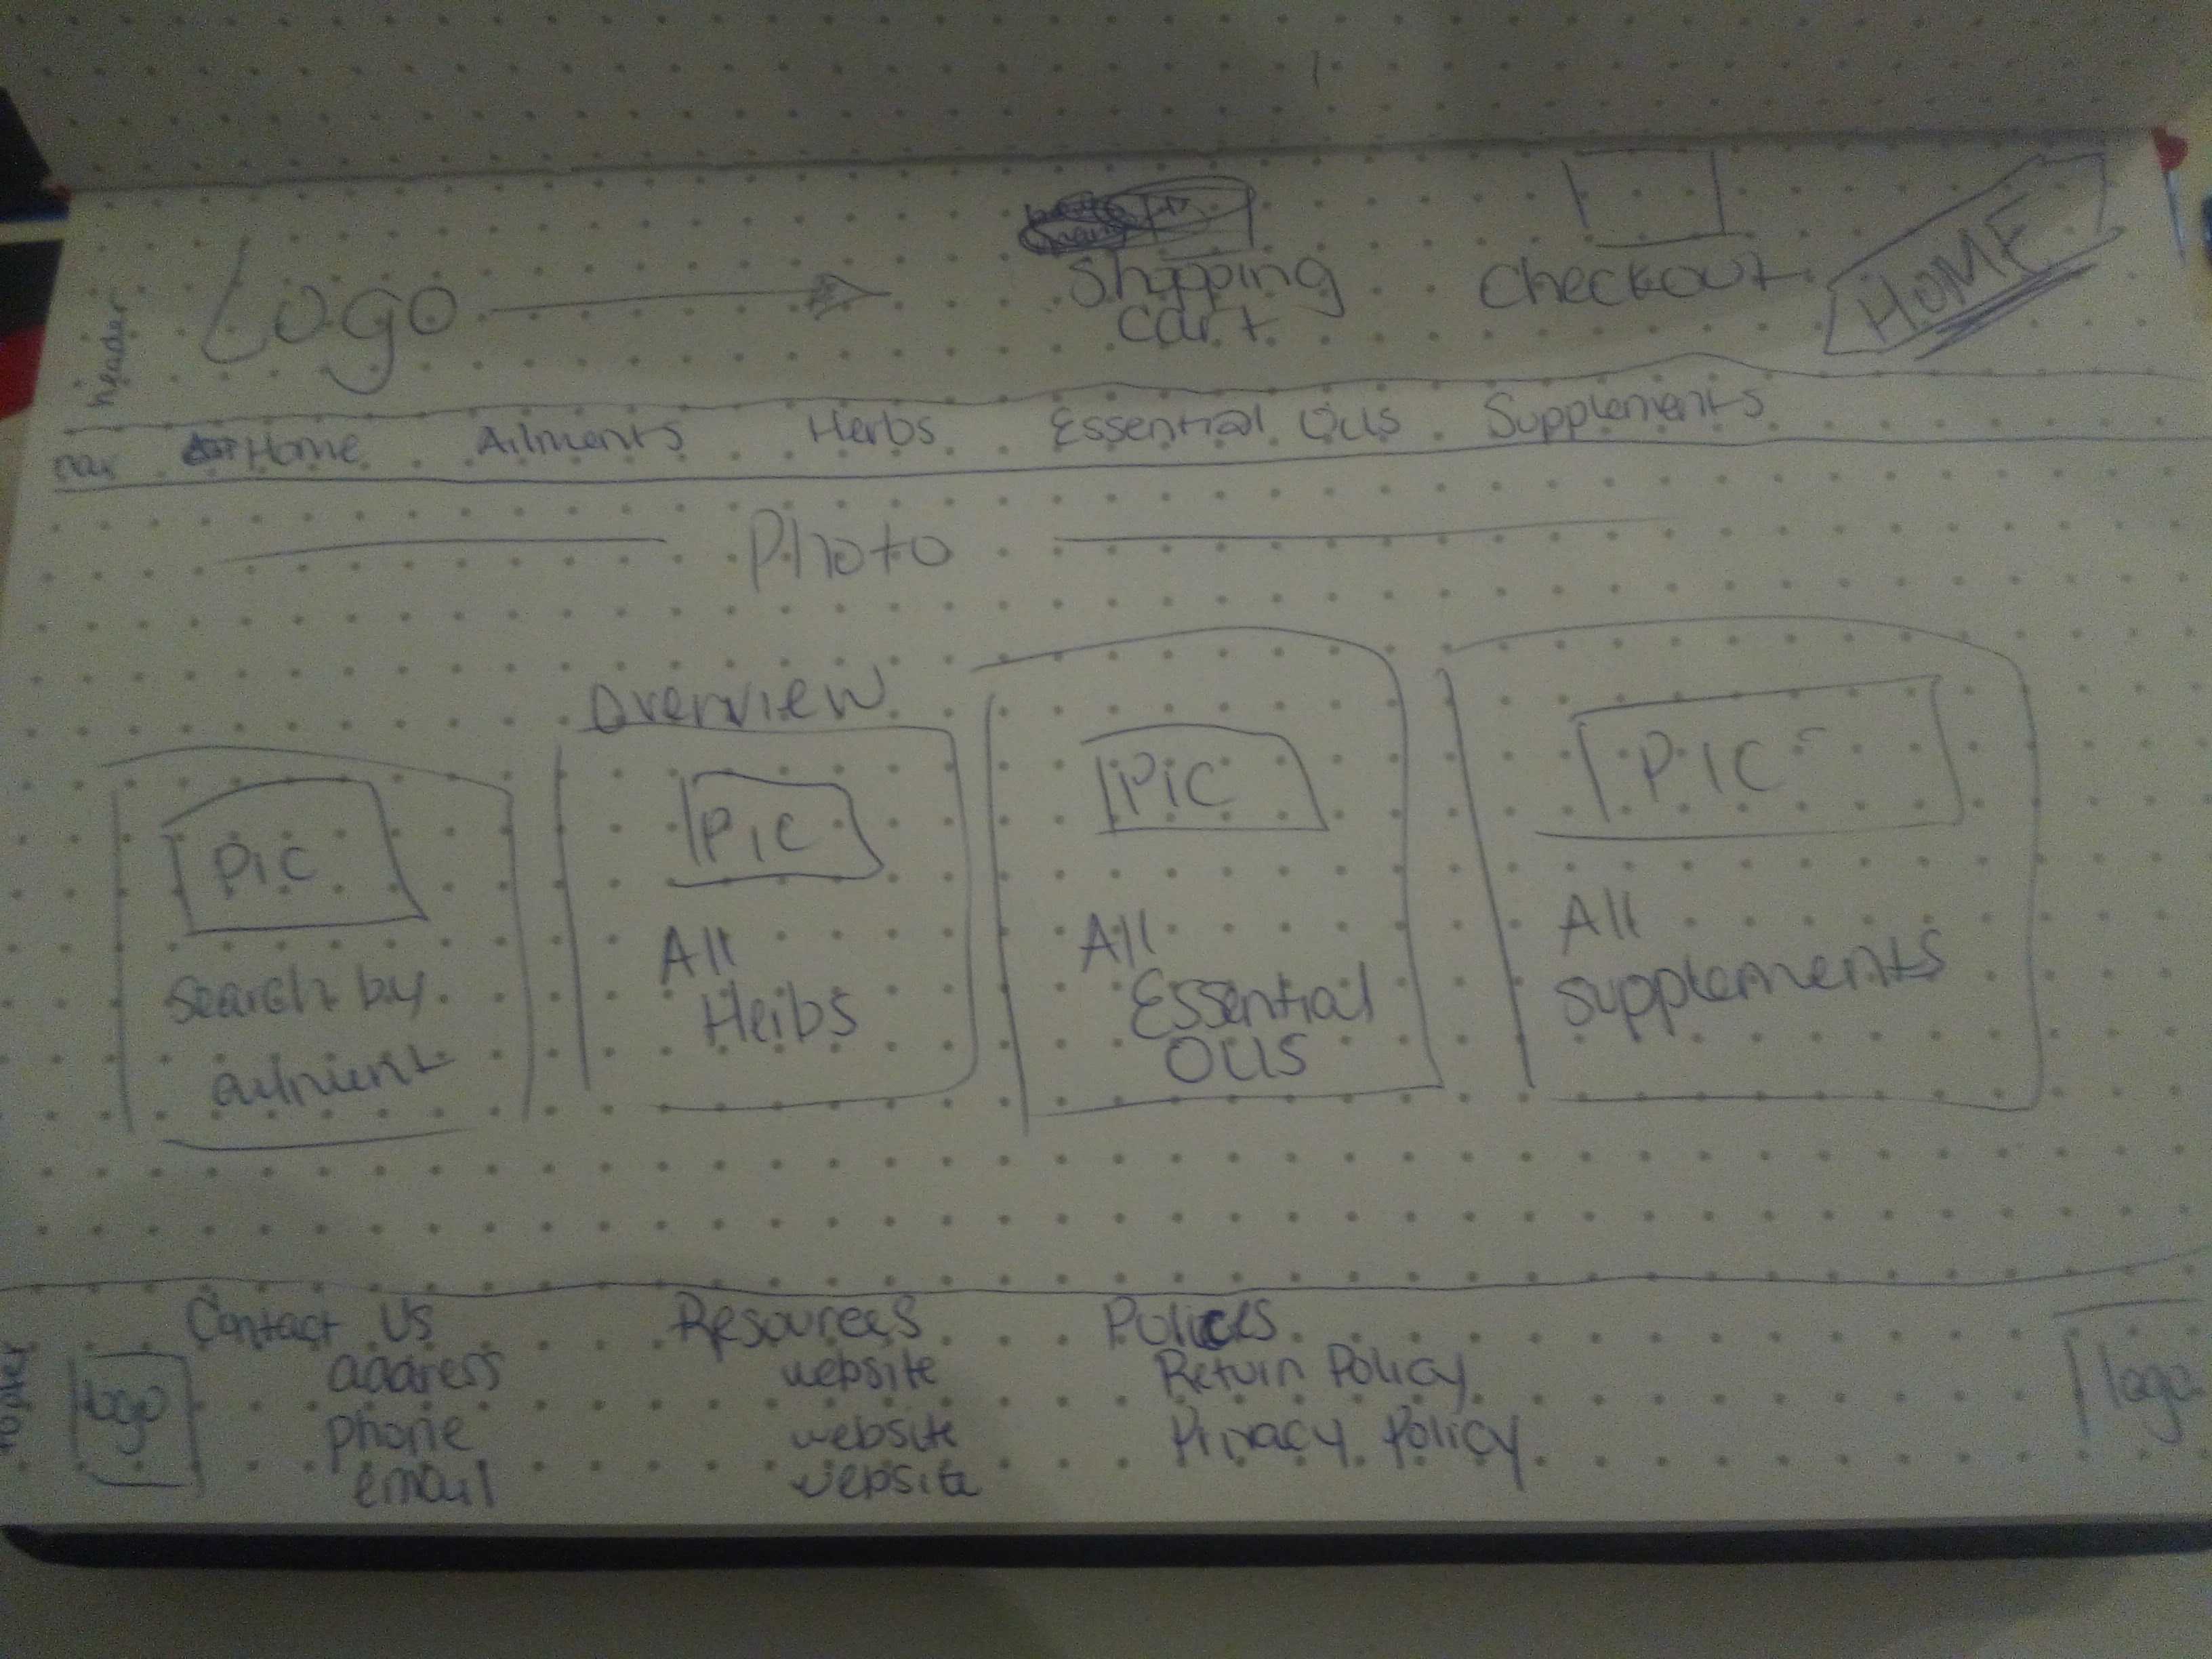 header
Logo
Shopping
cart
checkout
HOME
nav
Home Ailments Herbs Essential Oils Supplements
Photo
overview
PIC
search by
ailment
PIC
All
Herbs
PIC
All
Essential
Oils
PIC
All
supplements
footer
logo
Contact Us
address
phone
email
Resources
website
website
website
Policies
Return Policy
Privacy Policy
logo